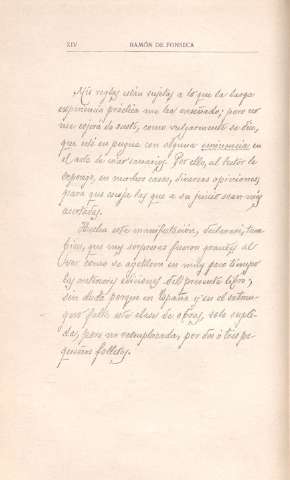 XIV RAMÓN DE FONSECA
Mis reglas están sujetas a lo que la larga
experiencia práctica me ha enseñado; pero no
me cojerá de susto, como vulgarmente se dice,
que esté en pugna con alguna eminencia en
el arte de criar canarios. Por ello, al lector le
expongo, en muchos casos, diversas opiniones,
para que escoja las que a su juicio sean más
acertadas.
Hecha esta manifestación, declararé, tam
bien, que mis sorpresas fueron grandes al
ver como se agotaron en muy poco tiempo
las anteriores ediciones del presente libro;
sin duda porque en España y en el extran
gero falta esta clase de obras, solo supli
das, pero no reemplazadas, por dos ó tres pe
queños folletos.